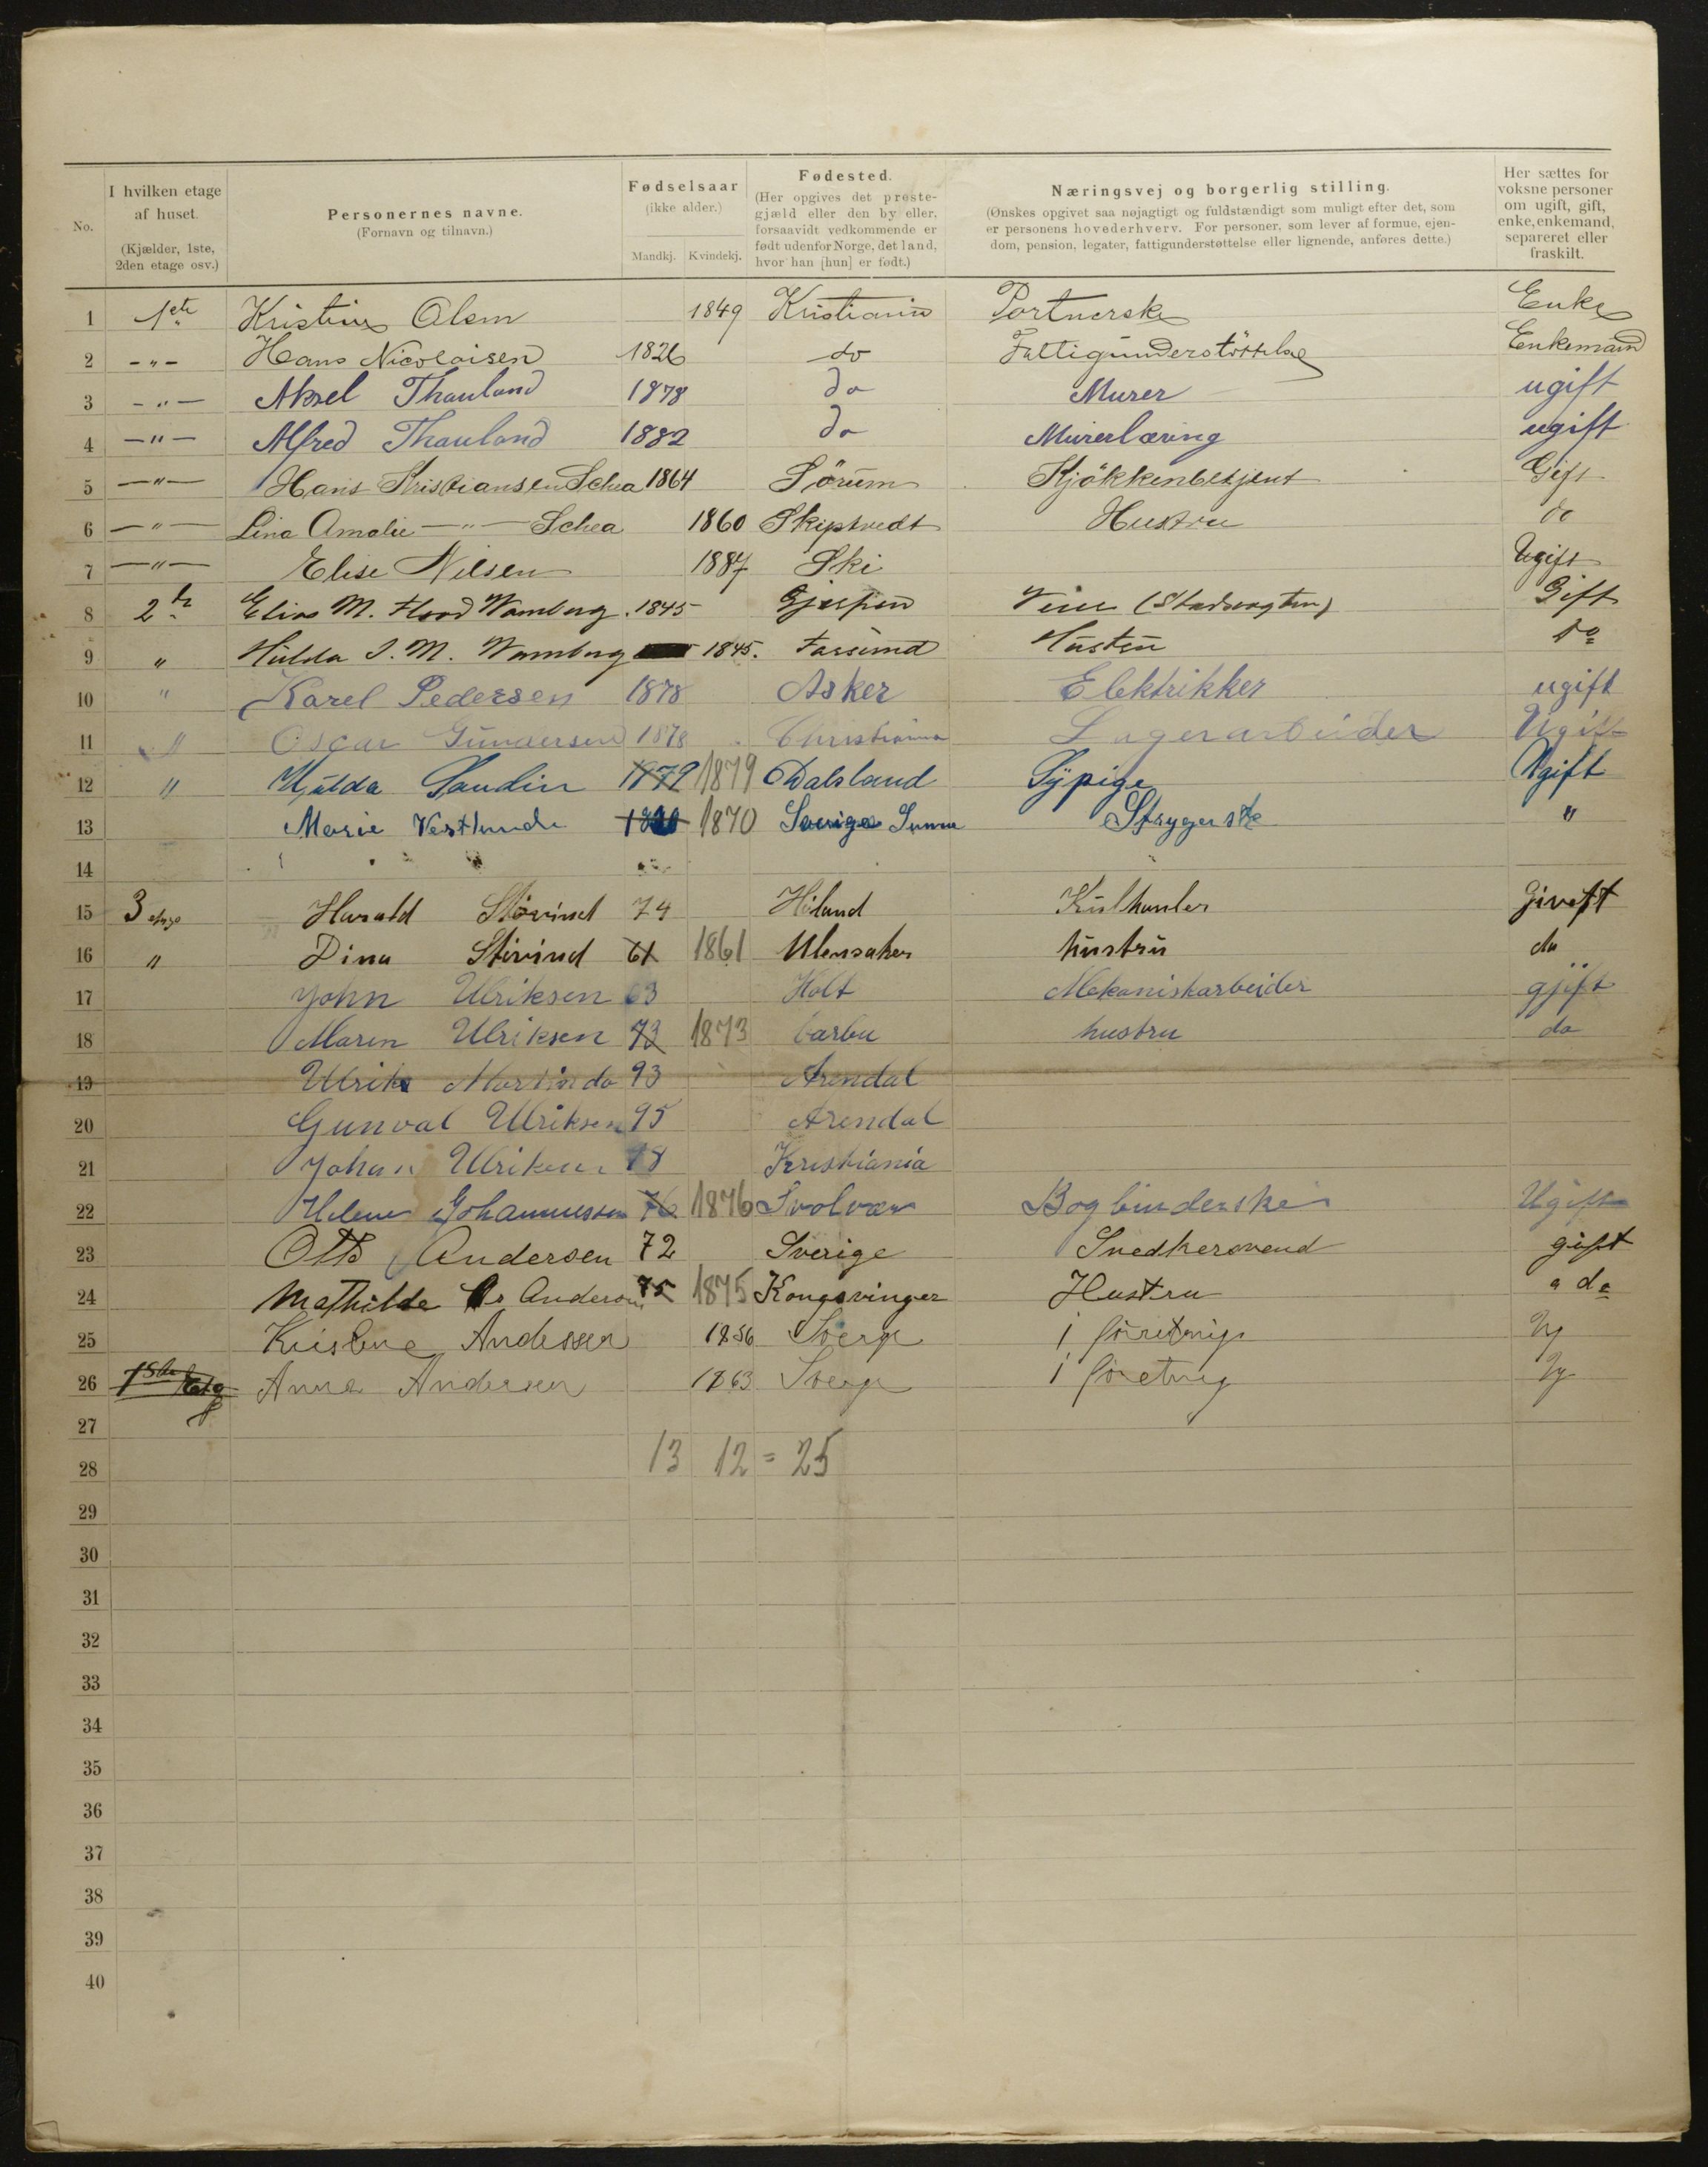 No.
I hvilken etage af huset. (Kjælder, 1ste, 2den etage osv.)
Personernes navne. (Fornavn og tilnavn.)
Fødselsaar (ikke alder.) Mandkj. Kvindekj.
Fødested. (Her opgives det prestegjæld eller den by eller, forsaavidt vedkommende er født udenfor Norge, det land, hvor han [hun] er født.)
Næringsvej og borgerlig stilling. (Ønskes opgivet saa nøjagtigt og fuldstændigt som muligt efter det, som er personens hovederhverv. For personer, som lever af formue, ejendom, pension, legater, fattigunderstøttelse eller lignende, anføres dette.)
Her sættes for voksne personer om ugift, gift, enke, enkemand, separeret eller fraskilt.
1 1ste Kristine Olsen 1849 Kristiania Portnerske Enke
2 -"- Hans Nicolaisen 1826 do Fattigunderstöttelse Enkemand
3 -"- Aksel Thauland 1878 do Murer ugift
4 -"- Alfred Thauland 1882 do Murerlæring ugift
5 -"- Hans Kristiansen Schea 1864 Sörum Kjökkenbetjent Gift
6 -"- Lina Amalie -"- Schea 1860 Skiptvedt Hustru do
7 -"- Elise Nilsen 1887 Ski Ugift
8 2 Elias M. Flood Wamberg 1845 Gjerpen (Stadsvagten) Gift
9 " Hulda J. M. Wamberg 1845. Farsund Do
10 " Karel Pedersen 1878 Asker Elektrikker ugift
11 " Oscar Gundersen 1878 Christiania Lagerarbeider Ugift
12 " Hulda Sandin 1879 1879 Dalsland Sypige Ugift
13 Marie Vestlunde 1870 Sverige Sunne Strygerske "
14
15 3 etage Harald Störind 74 Höland Kulhanler Giveft
16 " Dina Störind 61 1861 Ulensaker hustru do
17 John Ulriksen 63 Holt Mekaniskarbeider gjift
18 Maren Ulriksen 73 1873 barbu hustru do
19 Ulrik Martin do 93 Arendal
20 Gunval Ulriksen 95 Arendal
21 Johan Ulriksen 98 Kristiania
22 Helene Johannessen 76 1876 Svolvær Bogbinderske Ugift
23 Otto Andersen 72 Sverige Snedkersvend gift
24 Mathilde Anderson 75 1875 Kongsvinger Hustru do
25 Kristine Andersen 1856 Sverge i forretning Ug
26 1ste Etg Anna Andersen 1863 Sverge i foretnig Ug
27
28 13 12 = 25
29
30
31
32
33
34
35
36
37
38
39
40